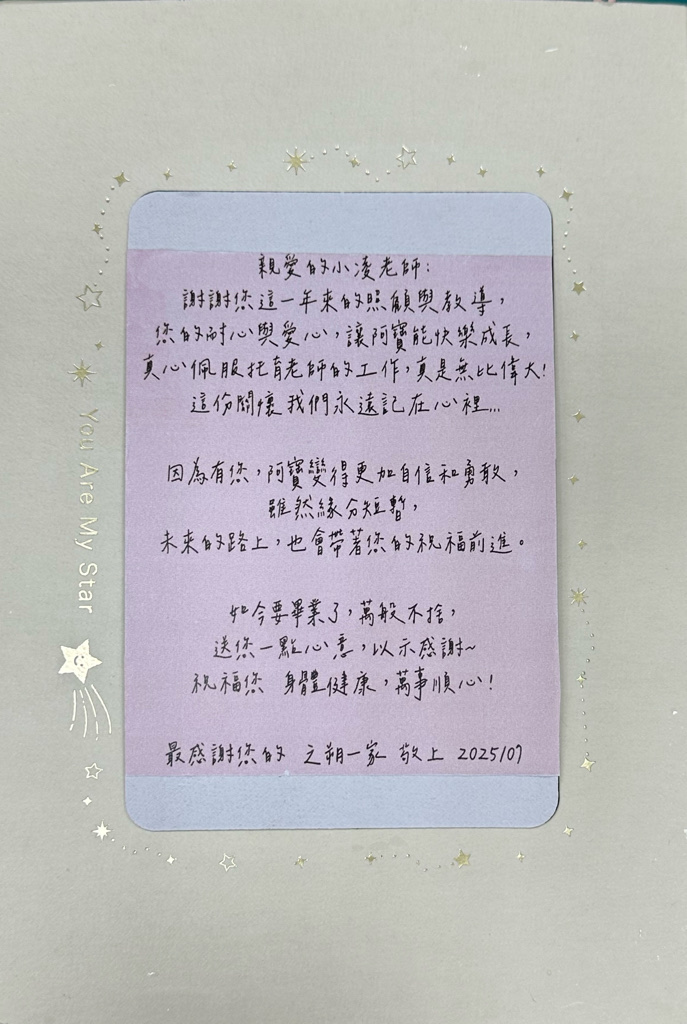 親愛的小凌老師：
謝謝您這一年來的照顧與教導，
您的耐心與愛心，讓阿寶能快樂成長，
真心佩服托育老師的工作，真是無比偉大！
這份關懷我們永遠記在心裡...
因為有您，阿寶變得更加自信和勇敢，
雖然緣分短暫，
未來的路上，也會帶著您的祝福前進。
如今要畢業了，萬般不捨，
送您一點心意，以示感謝~
祝福您 身體健康，萬事順心！
最感謝您的 之朔一家 敬上 2025/07
You Are My Star